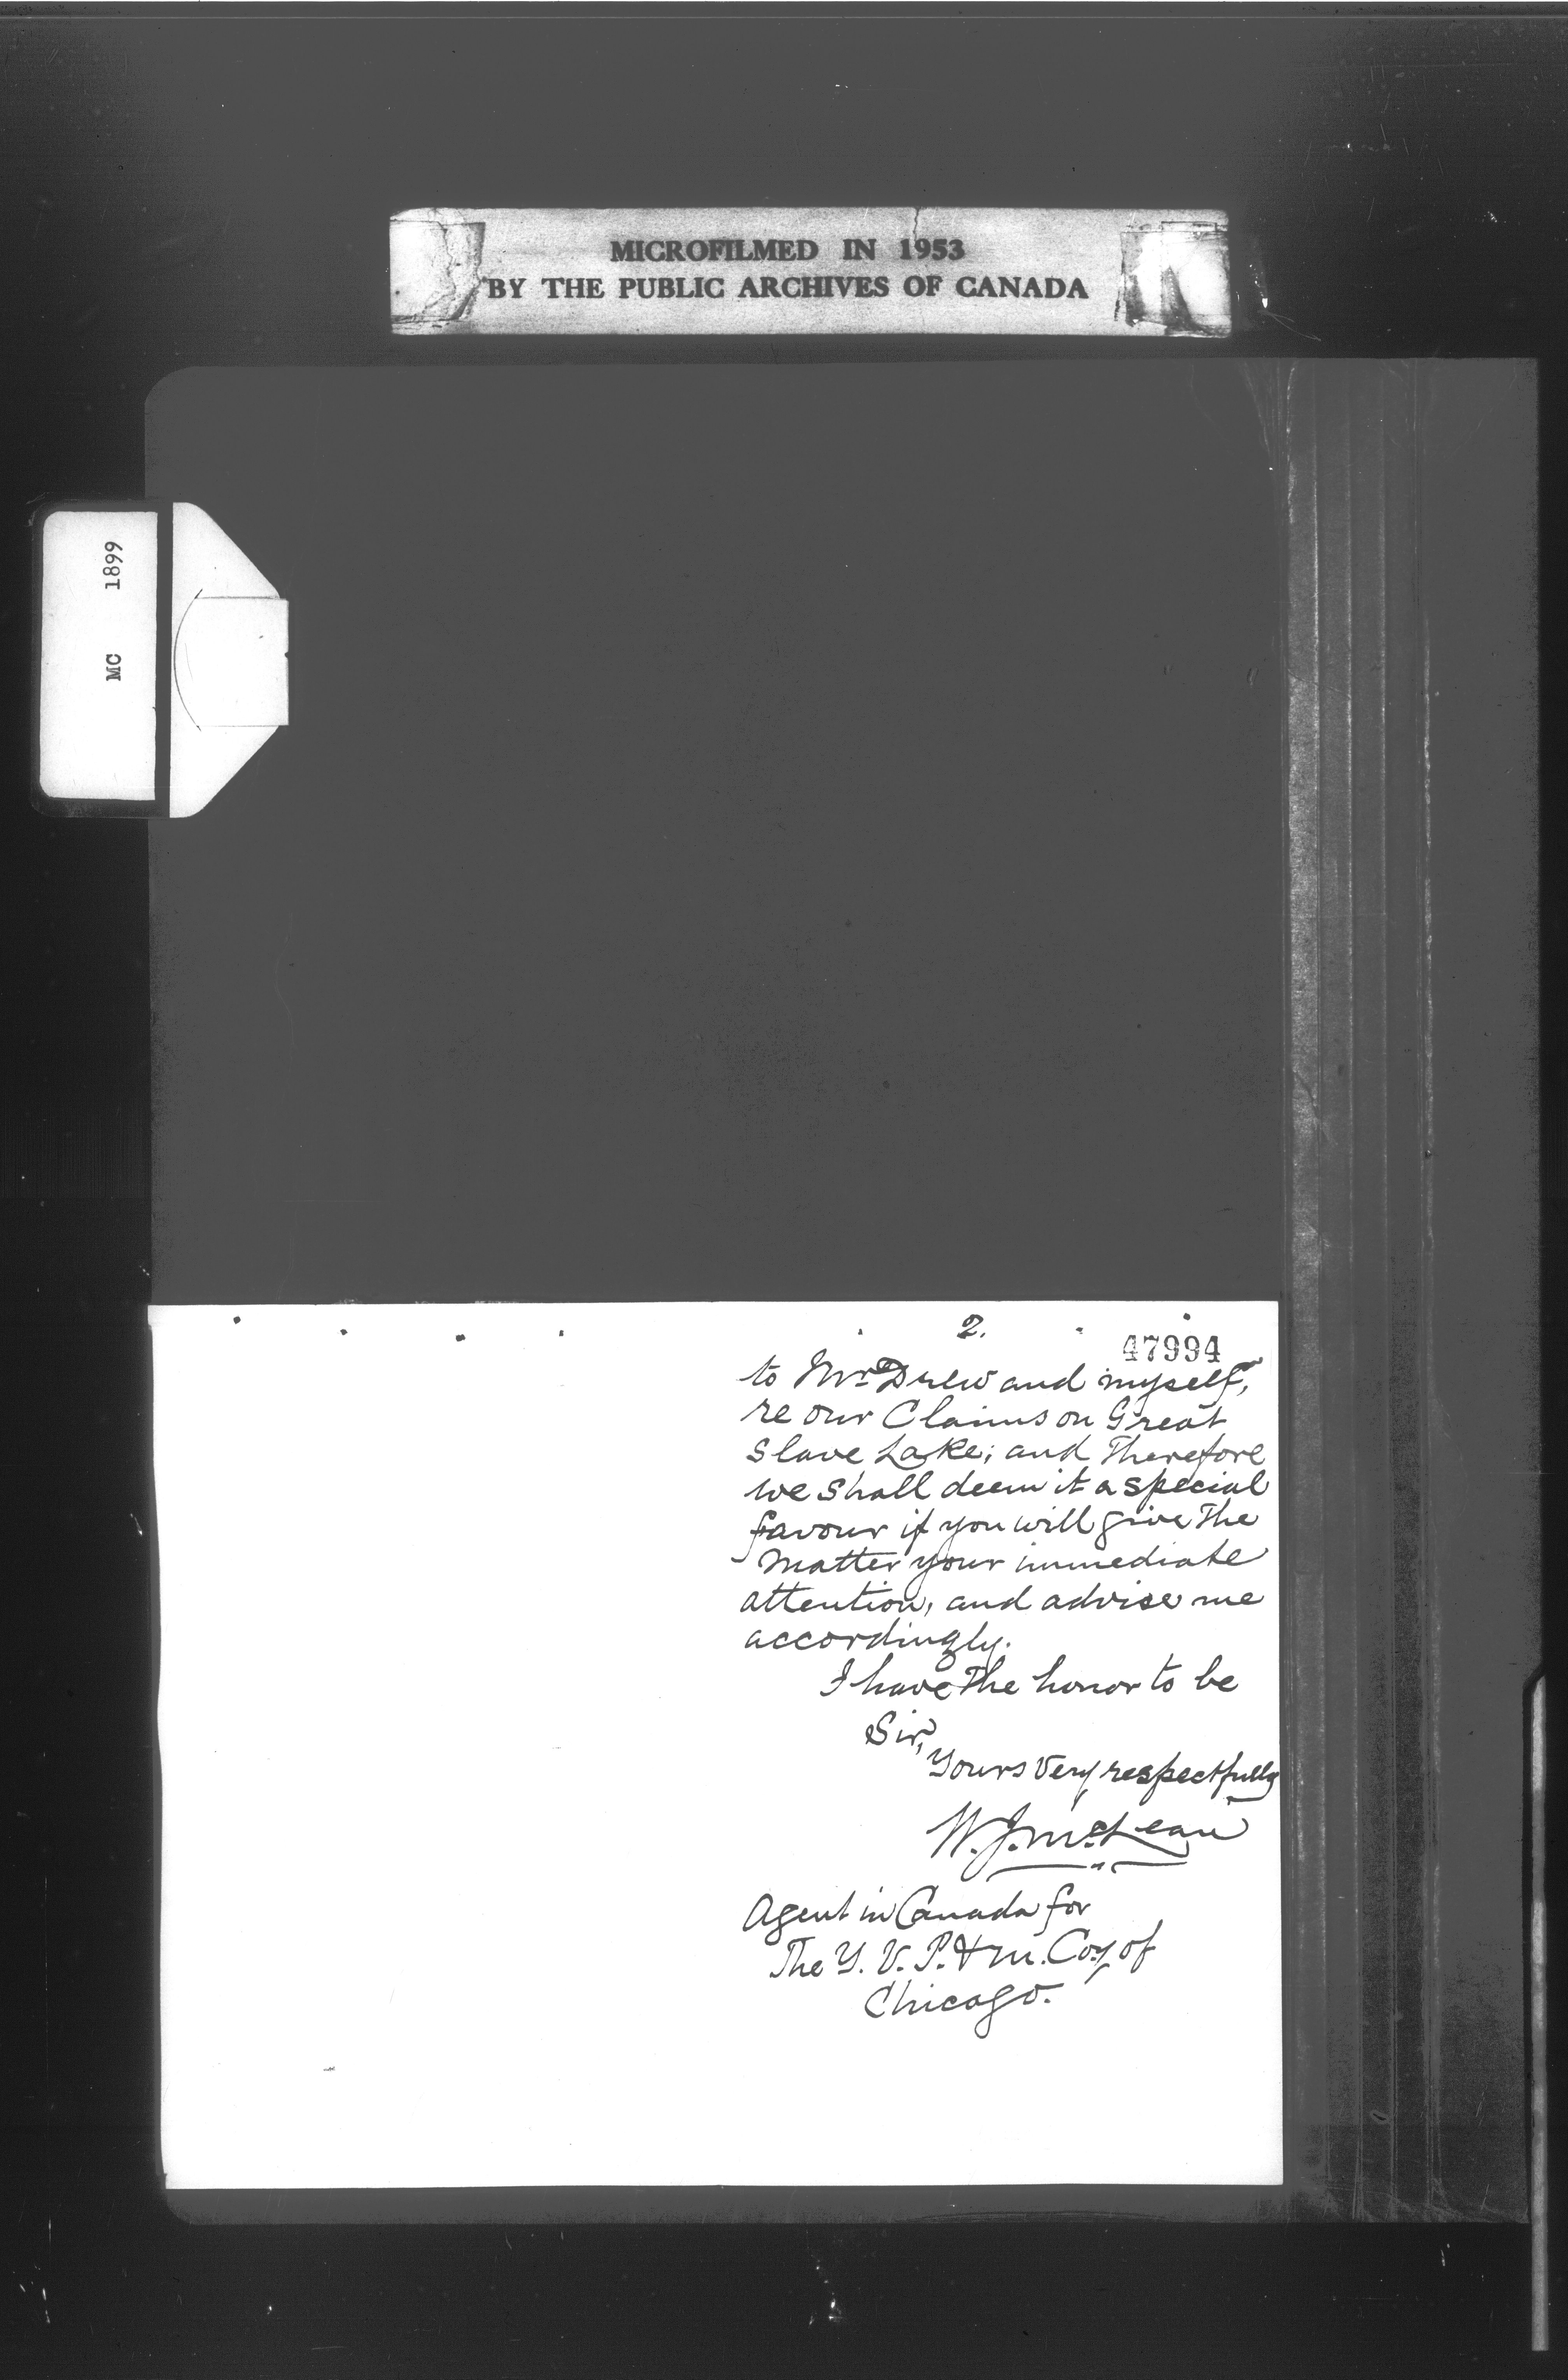 MICROFILMED IN 1953
BY THE PUBLIC ARCHIVES OF CANADA
MC 1899
2.
47994
to Mr. Drew and myself,
re our Claims on Great
Slave Lake; and Therefore
we shall deem it a special
favour if you will give The
Matter your immediate
attention, and advise me
accordingly.
I have The honor to be
Sir,
Yours Very respectfully
W. J. McLean
Agent in Canada for
The Y. V. P. & M. Coy of
Chicago.